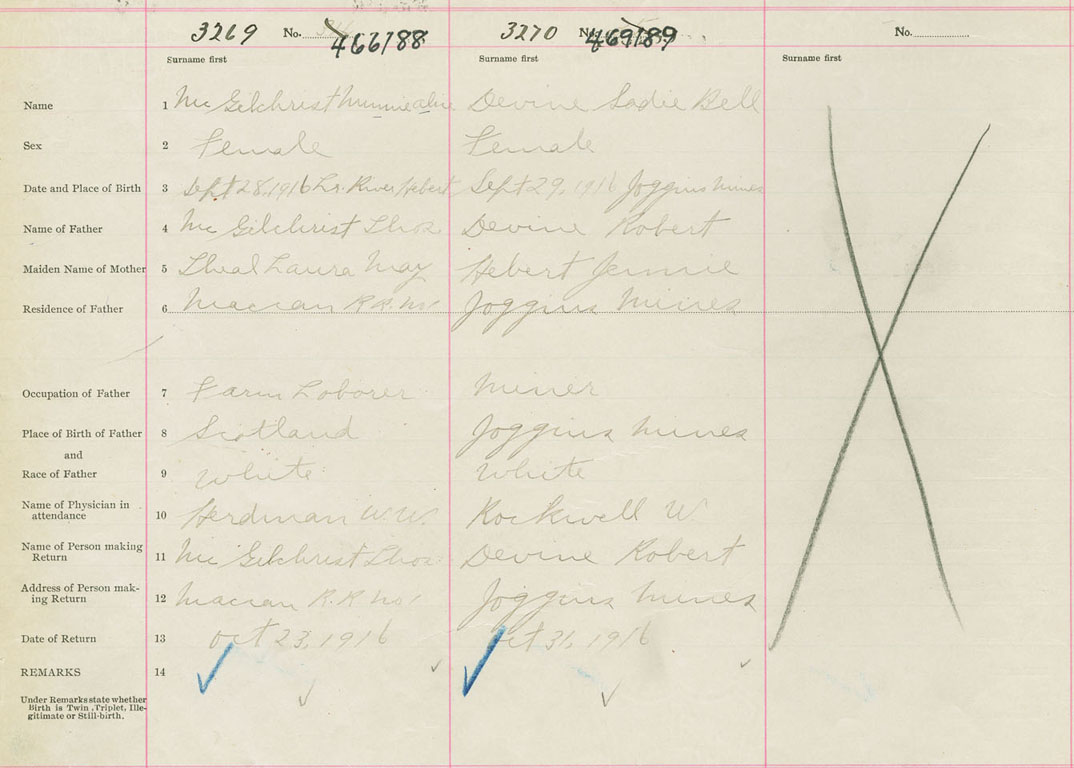 3269 No. 466788 3270 No. 469789 No.
Surname first Surname first Surname first
Name 1 Mc Gilchrist Minnie Devine Sadie Bell
Sex 2 Female Female
Date and Place of Birth 3 Sept 28, 1916 Lr. River Hebert Sept 29, 1916 Joggins Mines
Name of Father 4 Mc Gilchrist Thos Devine Robert
Maiden Name of Mother 5 Theal Laura May Hebert Jennie
Residence of Father 6 Maccan R.R. No 1 Joggins Mines
Occupation of Father 7 Farm Laborer Miner
Place of Birth of Father 8 Scotland Joggins Mines
and
Race of Father 9 White White
Name of Physician in
attendance 10 Herdman W. W. Rockwell W.
Name of Person making
Return 11 Mc Gilchrist Thos Devine Robert
Address of Person mak-
ing Return 12 Maccan R.R No 1 Joggins Mines
Date of Return 13 Oct 23, 1916 Oct 31, 1916
REMARKS 14
Under Remarks state whether
Birth is Twin, Triplet, Ille-
gitimate or Still-birth.